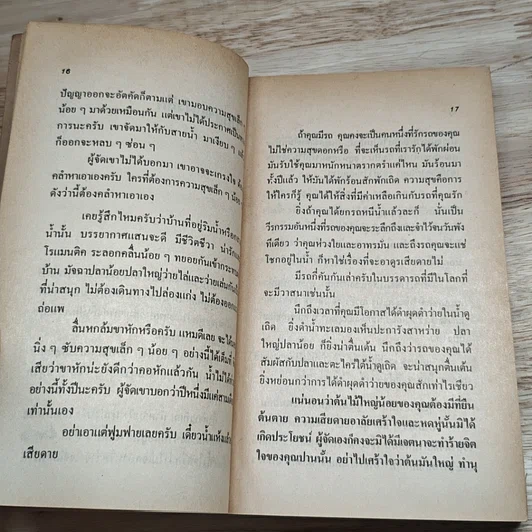 16
ปัญญาออกจะอัตคัดก็ตามแต่ เขามอบความสุขเล็ก
น้อย ๆ มาด้วยเหมือนกัน แต่เขาไม่ได้ประกาศเป็นทาง
การนะครับ เขาจัดมาให้กับสายน้ำ มาเงียบ ๆ แ
ก็ออกจะหลบ ๆ ซ่อน ๆ
ผู้จัดเขาไม่ได้บอกมา เขาอาจจะเกรงใจ ต้
คลำหาเอาเองครับ ใครที่ต้องการความสุขเล็ก ๆ น้อย
ดังว่านี้ต้องคลำหาเอาเอง
เคยรู้สึกไหมครับว่าบ้านที่อยู่ริมน้ำหรือก
น้ำนั้น บรรยากาศแสนจะดี มีชีวิตชีวา น่ารัก
โรแมนติค ระลอกคลื่นน้อย ๆ ทยอยกันเข้ากระทบ
บ้าน มัจฉาปลาน้อยปลาใหญ่ว่ายไล่และว่ายเล่นกัน
ที่น่าสนุก ไม่ต้องเดินทางไปล่องแก่ง ไม่ต้องออก
ถ่อแพ
ลื่นหกล้มขาหักหรือครับ แหมดีเลย จะได้
นิ่ง ๆ ซับความสุขเล็ก ๆ น้อย ๆ อย่างนี้ได้เต็มที่
เสียว่าขาหักน่ะยังดีกว่าคอหักแล้วกัน น้ำไม่ได้
อย่างนี้ทั้งปีนะครับ ผู้จัดเขาบอกว่าปีหนึ่งมีแค่สาม
เท่านั้นเอง
อย่าเอาแต่ฟูมฟายเลยครับ เดี๋ยวน้ำแห้งแล้ว
เสียดาย
17
ถ้าคุณมีรถ คุณคงจะเป็นคนหนึ่งที่รักรถของคุณ
ไม่ใช่ความสุขดอกหรือ ที่จะเห็นรถที่เรารักได้พักผ่อน
มันรับใช้คุณมาหนักหนาตรากตรำแค่ไหน มันร้อนมา
ทั้งปีแล้ว ให้มันได้พักร้อนสักพักเถิด ความสุขคือการ
ให้ใครก็รู้ คุณได้ให้สิ่งที่มีค่าเหลือเกินกับรถที่คุณรัก
ยิ่งถ้าคุณได้ยกรถหนีน้ำแล้วละก็ นั่นเป็น
วีรกรรมอันหนึ่งที่รถของคุณจะระลึกถึงและจำไว้จนวันพัง
ทีเดียว ว่าคุณห่วงใยและอาทรมัน และถึงรถคุณจะแช่
โชกอยู่ในน้ำ ก็หาใช่เรื่องที่จะอาดูรเสียดายไม่
มีรถกี่คันกันเล่าครับในบรรดารถที่มีในโลกที่
จะมีวาสนาเช่นนั้น
นึกถึงเวลาที่คุณมีโอกาสได้ดำผุดดำว่ายในน้ำดู
เถิด ยิ่งดำน้ำทะเลมองเห็นปะการังสาหร่าย ปลา
ใหญ่ปลาน้อย ก็ยิ่งน่าตื่นเต้น นึกถึงว่ารถของคุณได้
สัมผัสกับปลาและตะไคร่ใต้น้ำดูเถิด จะน่าสนุกตื่นเต้น
ยิ่งหย่อนกว่าการได้ดำผุดดำว่ายของคุณสักเท่าไรเชียว
แน่นอนว่าต้นไม้ใหญ่น้อยของคุณต้องมีที่ยืน
ต้นตาย ความเสียดายอาลัยเศร้าใจและหดหู่นั้นมิได้
เกิดประโยชน์ ผู้จัดเองก็คงจะมิได้มีเจตนาจะทำร้ายจิต
ใจของคุณปานนั้น อย่าไปเศร้าใจว่าต้นมันใหญ่ ทำนุ